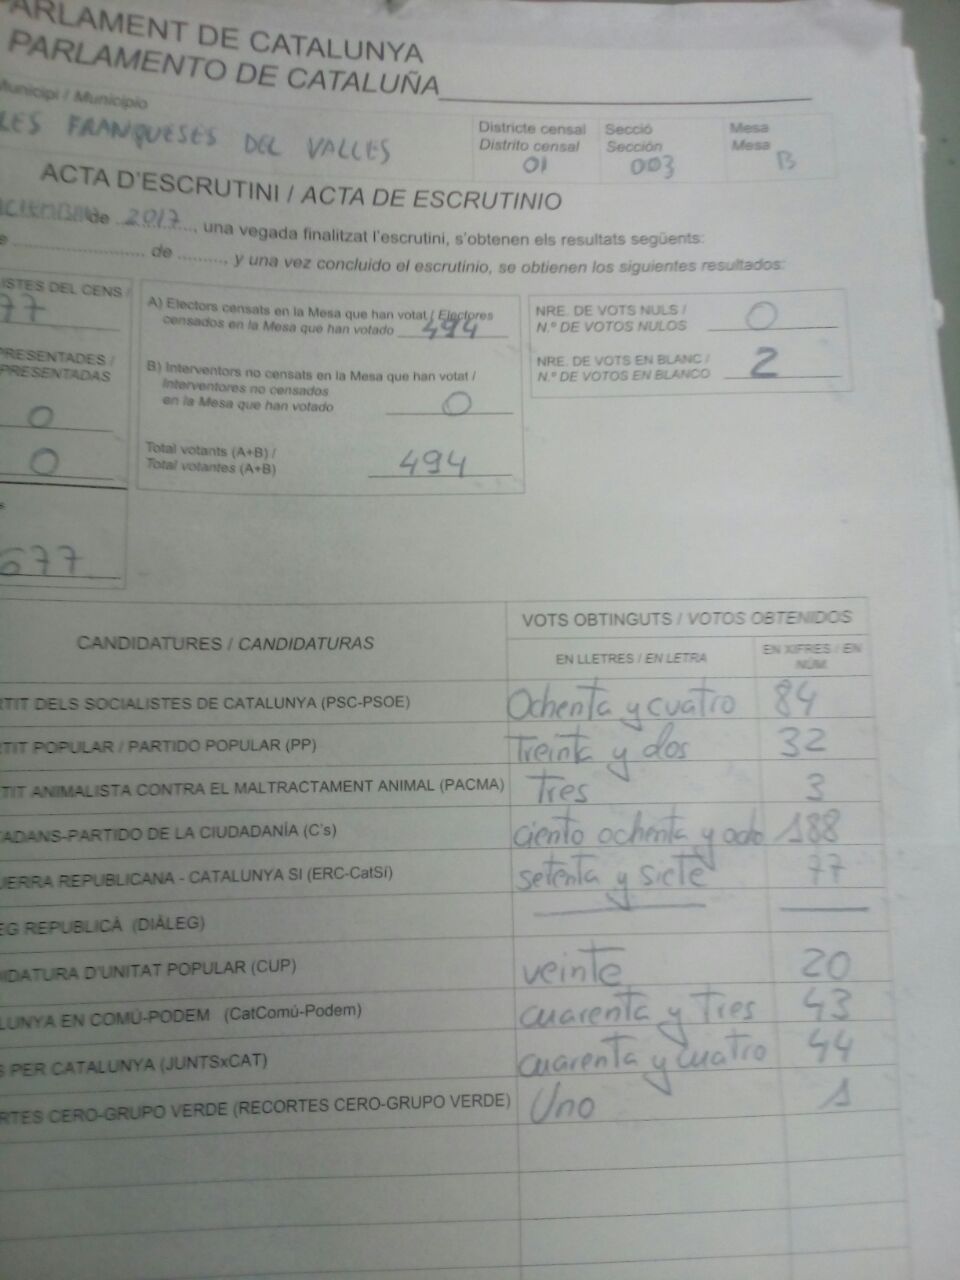 ARLAMENT DE CATALUNYA
PARLAMENTO DE CATALUÑA
Municipi / Municipio
LES FRANQUESES DEL VALLES
Districte censal
Distrito censal
01
Secció
Sección
003
Mesa
Mesa
B
ACTA D'ESCRUTINI / ACTA DE ESCRUTINIO
de 2017, una vegada finalitzat l'escrutini, s'obtenen els resultats següents:
de ........., y una vez concluido el escrutinio, se obtienen los siguientes resultados:
ISTES DEL CENS /
77
PRESENTADES /
PRESENTADAS
0
0
677
A) Electors censats en la Mesa que han votat / Electores
censados en la Mesa que han votado 494
B) Interventors no censats en la Mesa que han votat /
Interventores no censados
en la Mesa que han votado 0
Total votants (A+B) /
Total votantes (A+B) 494
NRE. DE VOTS NULS /
N.º DE VOTOS NULOS 0
NRE. DE VOTS EN BLANC /
N.º DE VOTOS EN BLANCO 2
CANDIDATURES / CANDIDATURAS
VOTS OBTINGUTS / VOTOS OBTENIDOS
EN LLETRES / EN LETRA
EN XIFRES / EN
NÚM.
RTIT DELS SOCIALISTES DE CATALUNYA (PSC-PSOE) Ochenta y cuatro 84
RTIT POPULAR / PARTIDO POPULAR (PP) Treinta y dos 32
TIT ANIMALISTA CONTRA EL MALTRACTAMENT ANIMAL (PACMA) Tres 3
TADANS-PARTIDO DE LA CIUDADANÍA (C's) ciento ochenta y ocho 188
UERRA REPUBLICANA - CATALUNYA SI (ERC-CatSí) setenta y siete 77
EG REPUBLICÀ (DIÀLEG)
DIDATURA D'UNITAT POPULAR (CUP) veinte 20
LUNYA EN COMÚ-PODEM (CatComú-Podem) cuarenta y Tres 43
S PER CATALUNYA (JUNTSxCAT) cuarenta y cuatro 44
RTES CERO-GRUPO VERDE (RECORTES CERO-GRUPO VERDE) Uno 1